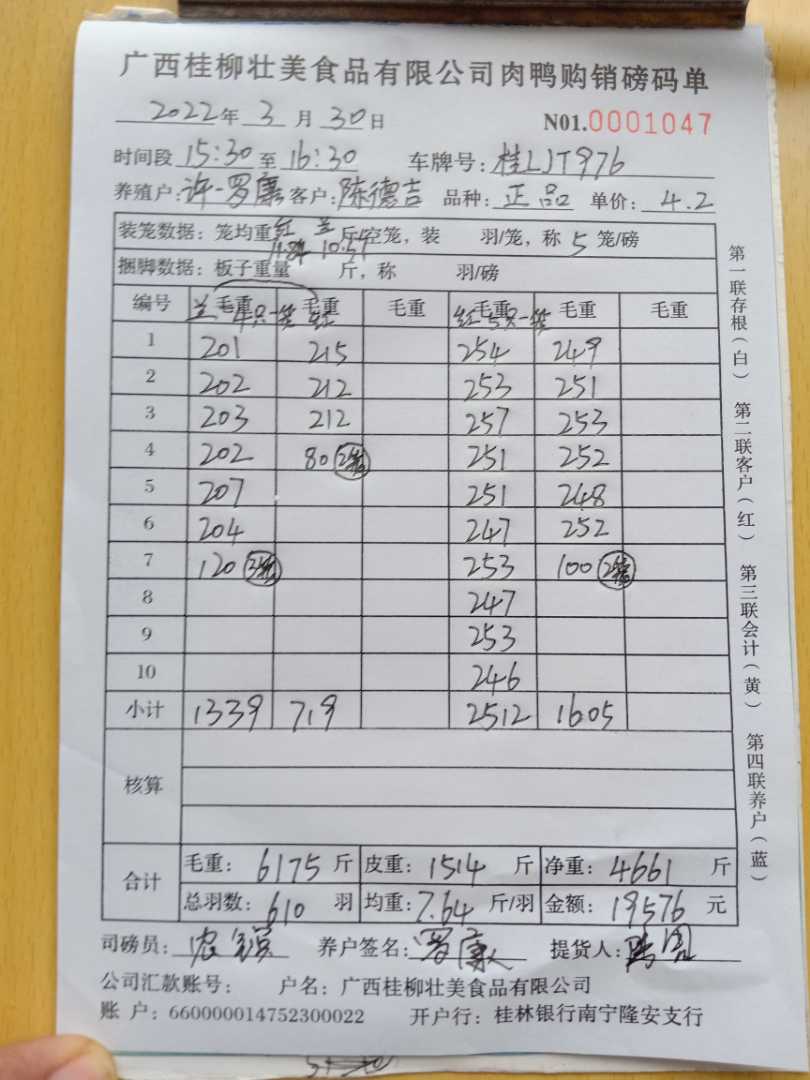 广西桂柳壮美食品有限公司肉鸭购销磅码单
2022年 3 月 30日 N01.0001047
时间段 15:30 至 16:30 车牌号: 桂LJT976
养殖户: 许-罗廉 客户: 陈德吉 品种: 正品 单价: 4.2
装笼数据: 笼均重 红 兰 10.57 斤/空笼, 装 羽/笼, 称 5 笼/磅
捆脚数据: 板子重量 斤, 称 羽/磅
编号 兰 毛重 4只一笼 毛重 红 毛重 红 毛重 5只一笼 毛重 毛重
1 201 215 254 249
2 202 212 253 251
3 203 212 257 253
4 202 80 2笼 251 252
5 207 251 248
6 204 247 252
7 120 3笼 253 100 2笼
8 247
9 253
10 246
小计 1339 719 2512 1605
核算
合计 毛重: 6175 斤 皮重: 1514 斤 净重: 4661 斤
总羽数: 610 羽 均重: 7.64 斤/羽 金额: 19576 元
司磅员: 农 养户签名: 罗廉 提货人:
公司汇款账号: 户名: 广西桂柳壮美食品有限公司
账 户: 660000014752300022 开户行: 桂林银行南宁隆安支行
第一联存根(白) 第二联客户(红) 第三联会计(黄) 第四联养户(蓝)